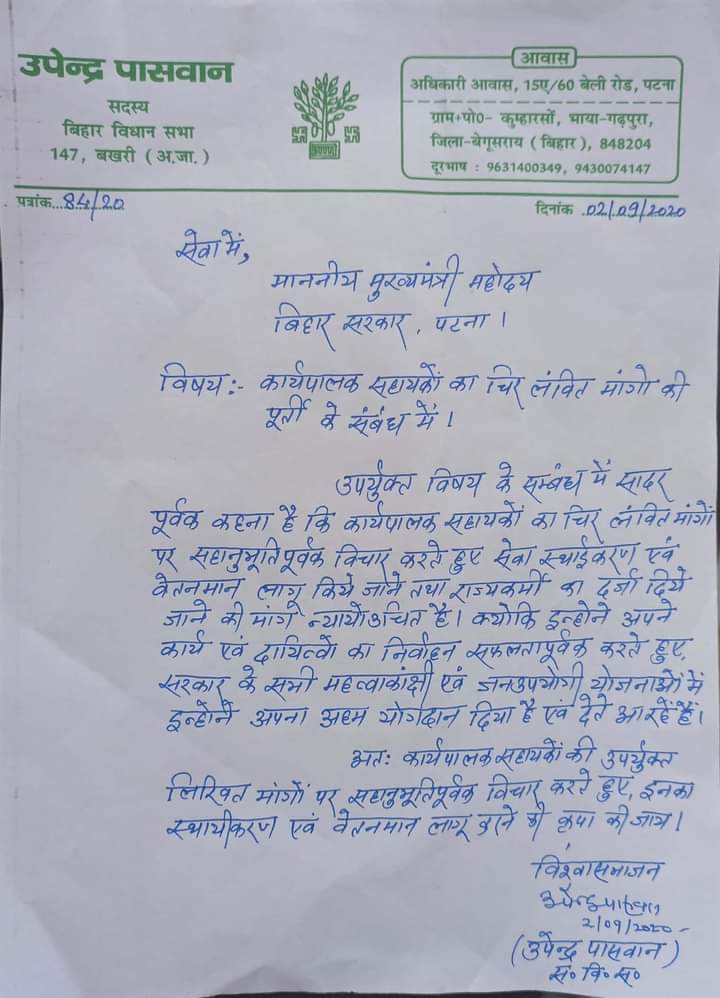 उपेन्द्र पासवान
सदस्य
बिहार विधान सभा
147, बखरी (अ.जा.)
आवास
अधिकारी आवास, 15ए/60 बेली रोड, पटना
ग्राम+पो०- कुम्हारसों, भाया-गढ़पुरा,
जिला-बेगूसराय (बिहार), 848204
दूरभाष : 9631400349, 9430074147
पत्रांक...84/20
दिनांक .02/09/2020
सेवा में,
माननीय मुख्यमंत्री महोदय
बिहार सरकार, पटना।
विषय:- कार्यपालक सहायकों का चिर लंवित मांगो की
पूर्ती के संबंध में।
उपर्युक्त विषय के सम्बंध में सादर
पूर्वक कहना है कि कार्यपालक सहायकों का चिर लंवित मांगों
पर सहानुभूतिपूर्वक विचार करते हुए सेवा स्थाईकरण एवं
वेतनमान लागू किये जाने तथा राज्यकर्मी का दर्जा दिये
जाने की मांग न्यायोऽचित है। क्योकि इन्होने अपने
कार्य एवं दायित्वो का निर्वाहन सफलतापूर्वक करते हुए,
सरकार के सभी महत्वाकांक्षी एवं जनउपयोगी योजनाओं में
इन्होनें अपना अहम योगदान दिया है एवं देते आ रहें हैं।
अतः कार्यपालक सहायकों की उपर्युक्त
लिखित मांगों पर सहानुभूतिपूर्वक विचार करते हुए, इनका
स्थायीकरण एवं वेतनमान लागू करने की कृपा की जाय।
विश्वासभाजन
उपेन्द्र पासवान
2/09/2020
(उपेन्द्र पासवान)
स० वि० स०